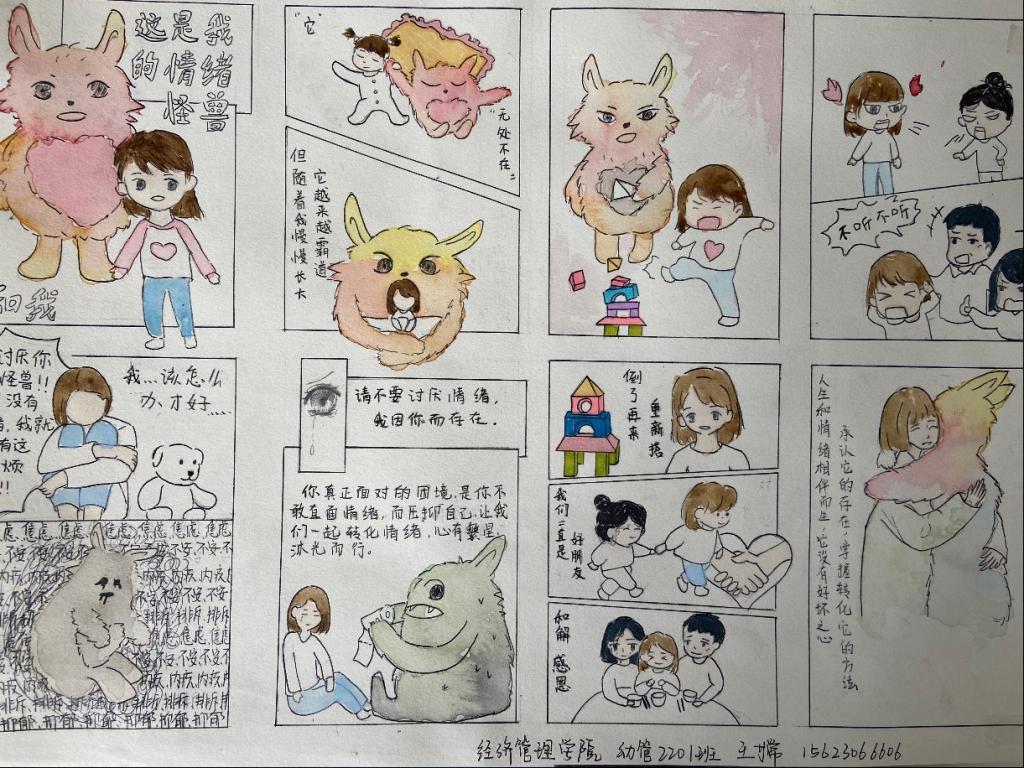 这是我
的情绪
怪兽
“它”
“无处不在”
但随着我慢慢长大
它越来越霸道
不听不听
讨厌你
怪兽!!
没有
我就
有这
烦
!!
我…该怎么
办才好……
焦虑.焦虑.焦虑.焦虑.焦虑
不安.不安.不安.不安
内疚.内疚.内疚
排斥.排斥.排斥
抑郁.抑郁.抑郁.抑郁.抑郁
请不要讨厌情绪,
我因你而存在。
你真正面对的困境,是你不
敢直面情绪,而压抑自己,让我
们一起转化情绪,心有繁星,
沐光而行。
倒了再来
重新搭
我们一直是
好朋友
和解 感恩
人生和情绪相伴而生,它没有好坏之心
承认它的存在,掌握转化它的方法
经济管理学院 幼管2201班 王婷 15623066606